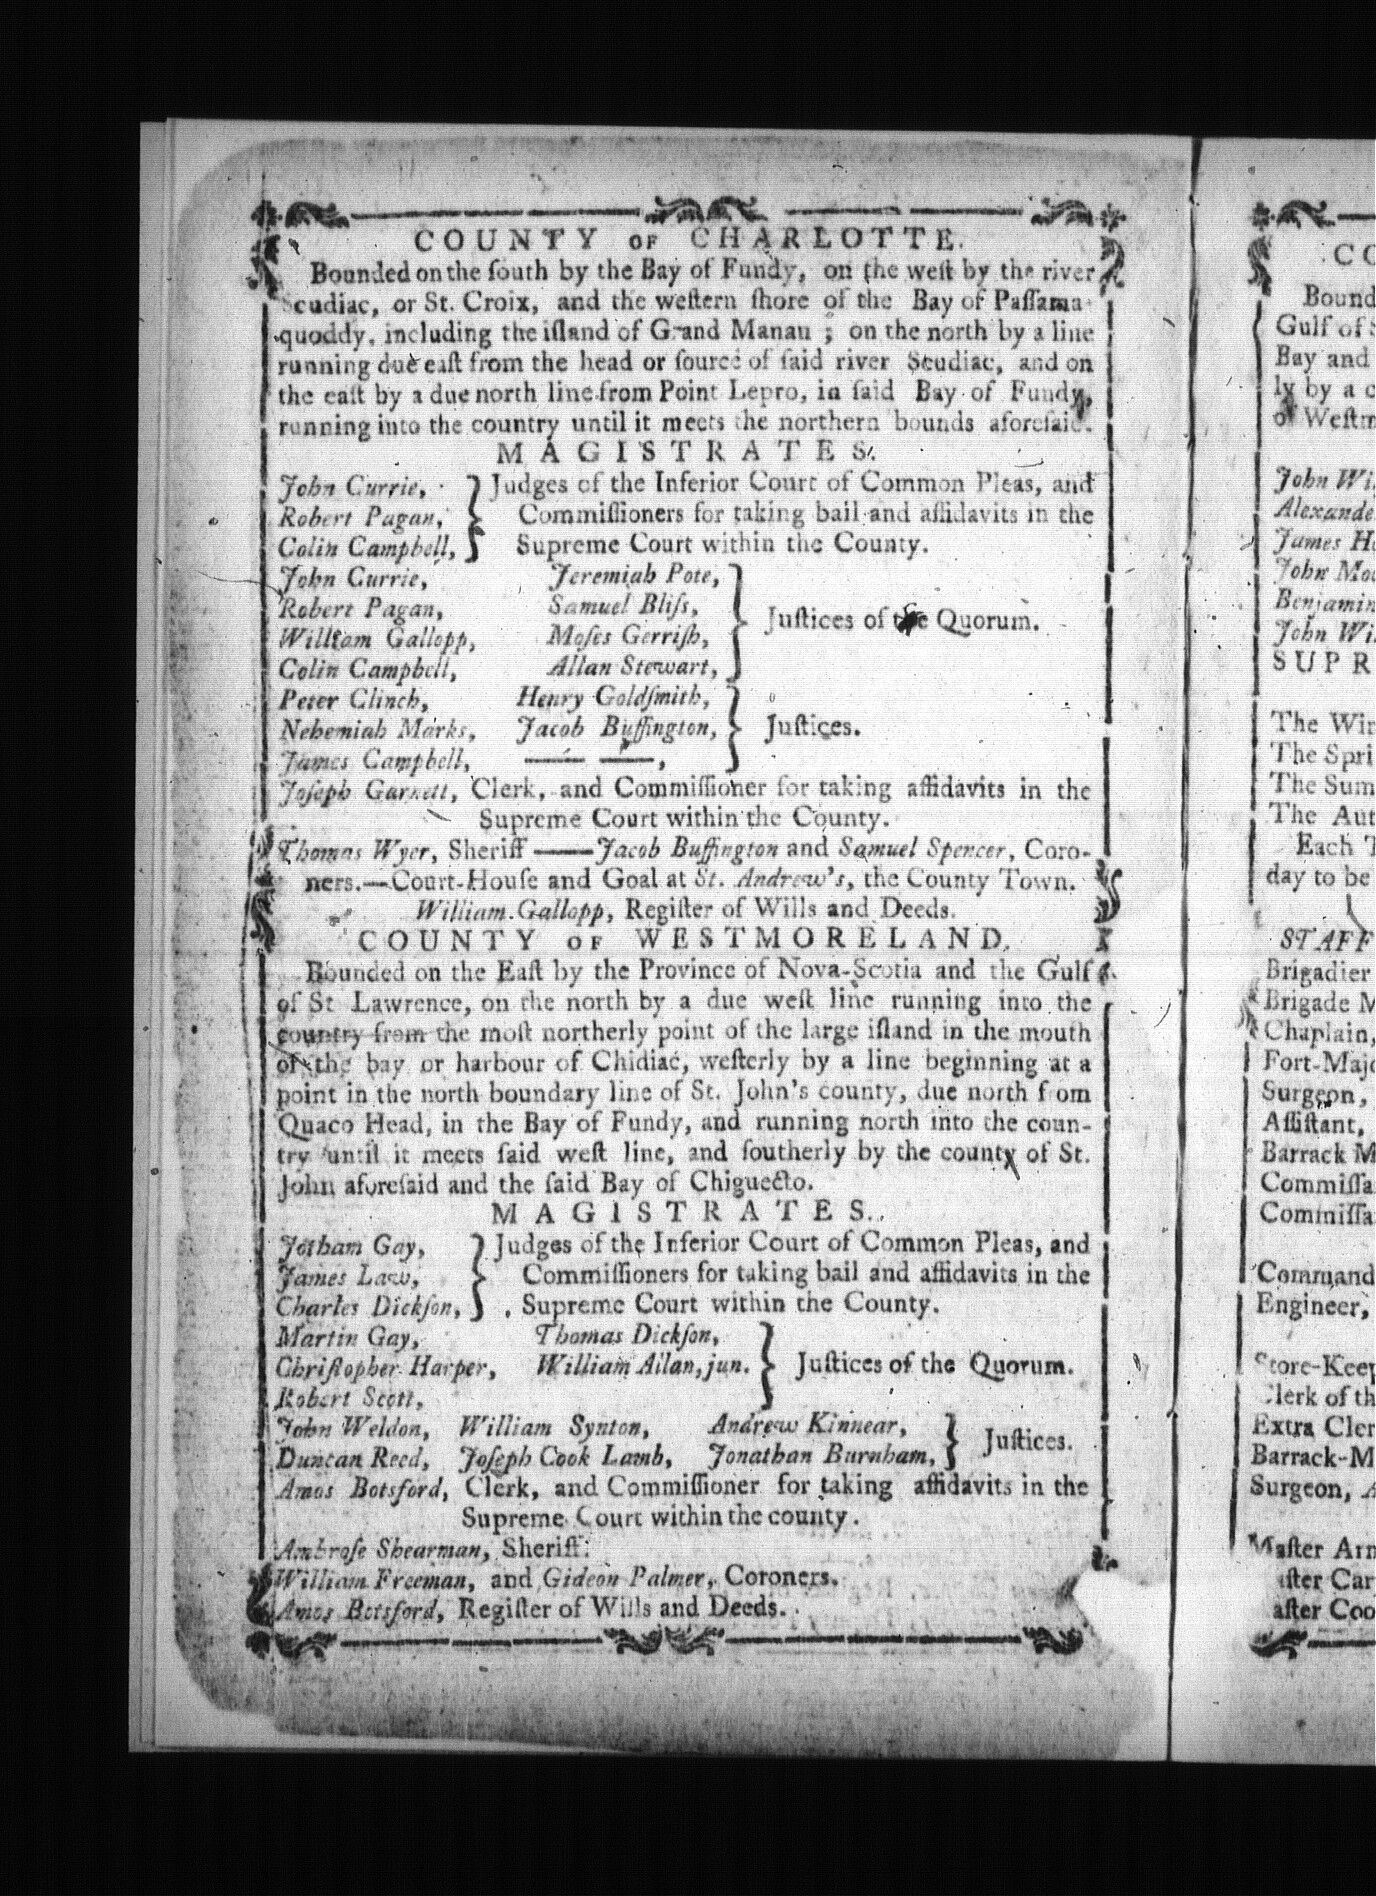 COUNTY OF CHARLOTTE.
Bounded on the ſouth by the Bay of Fundy, on the weſt by the river
Scudiac, or St. Croix, and the weſtern ſhore of the Bay of Paſſama-
quoddy, including the iſland of Grand Manau ; on the north by a line
running due eaſt from the head or ſource of ſaid river Scudiac, and on
the eaſt by a due north line from Point Lepro, in ſaid Bay of Fundy,
running into the country until it meets the northern bounds aforeſaid.
MAGISTRATES.
John Currie,
Robert Pagan,
Colin Campbell,
Judges of the Inferior Court of Common Pleas, and
Commiſſioners for taking bail and affidavits in the
Supreme Court within the County.
John Currie, Jeremiah Pote,
Robert Pagan, Samuel Bliſs,
William Gallopp, Moſes Gerriſh,
Colin Campbell, Allan Stewart,
Juſtices of the Quorum.
Peter Clinch, Henry Goldſmith,
Nehemiah Marks, Jacob Buffington,
James Campbell, —— ——,
Juſtices.
Joſeph Garnett, Clerk, and Commiſſioner for taking affidavits in the
Supreme Court within the County.
Thomas Wyer, Sheriff —— Jacob Buffington and Samuel Spencer, Coro-
ners.—Court-Houſe and Goal at St. Andrew's, the County Town.
William Gallopp, Regiſter of Wills and Deeds.
COUNTY OF WESTMORELAND.
Bounded on the Eaſt by the Province of Nova-Scotia and the Gulf
of St Lawrence, on the north by a due weſt line running into the
country from the moſt northerly point of the large iſland in the mouth
of the bay or harbour of Chidiac, weſterly by a line beginning at a
point in the north boundary line of St. John's county, due north f om
Quaco Head, in the Bay of Fundy, and running north into the coun-
try until it meets ſaid weſt line, and ſoutherly by the county of St.
John aforeſaid and the ſaid Bay of Chiguecto.
MAGISTRATES.
Jotham Gay,
James Law,
Charles Dickſon,
Judges of the Inferior Court of Common Pleas, and
Commiſſioners for taking bail and affidavits in the
Supreme Court within the County.
Martin Gay, Thomas Dickſon,
Chriſtopher Harper, William Allan, jun.
Robert Scott,
Juſtices of the Quorum.
John Weldon, William Synton, Andrew Kinnear,
Duncan Reed, Joſeph Cook Lamb, Jonathan Burnham,
Juſtices.
Amos Botsford, Clerk, and Commiſſioner for taking affidavits in the
Supreme Court within the county.
Ambroſe Shearman, Sheriff.
William Freeman, and Gideon Palmer, Coroners.
Amos Botsford, Regiſter of Wills and Deeds.
CO
Bound
Gulf of
Bay and
ly by a c
of Weſtm
John Wi
Alexande
James H
John Mo
Benjamin
John Wi
SUPR
The Win
The Spri
The Sum
The Aut
Each T
day to be
STAFF
Brigadier
Brigade M
Chaplain,
Fort-Majo
Surgeon,
Aſſiſtant,
Barrack M
Commiſſa
Commiſſa
Command
Engineer,
Store-Keep
Clerk of th
Extra Cler
Barrack-M
Surgeon,
Maſter Arm
aſter Car
aſter Coo